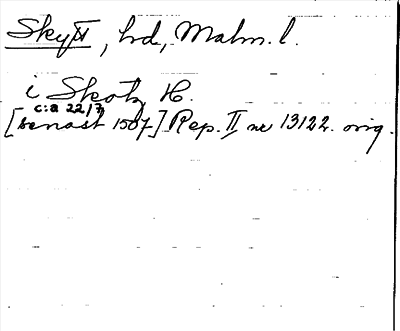 Skytt, hd, Malm. l.
i Skots H.
c:a 22/7
[senast 1507] Rep. II nr 13122. orig.